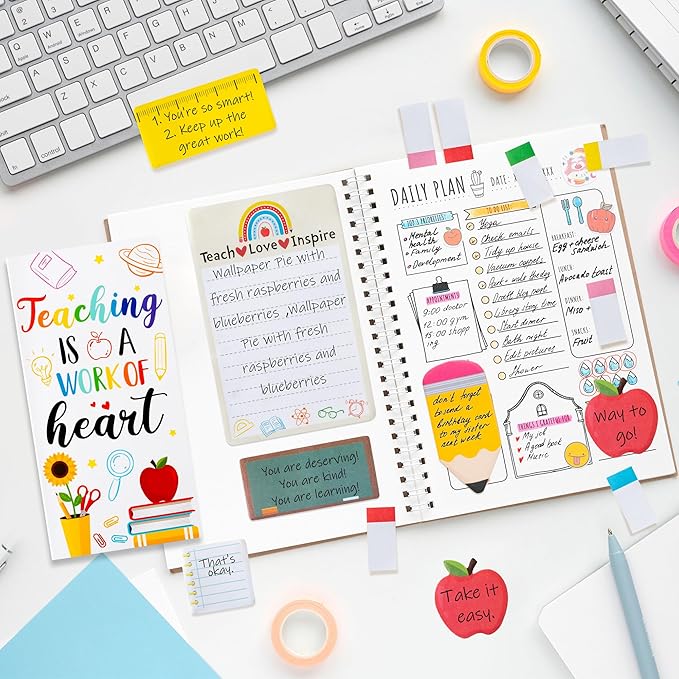 1. You're so smart!
2. Keep up the
great work!
Teaching
IS A
WORK OF
heart
Teach Love Inspire
Wallpaper Pie with
fresh raspberries and
blueberries ,Wallpaper
Pie with fresh
raspberries and
blueberries
You are deserving!
You are kind!
You are learning!
That's
okay.
DAILY PLAN
DATE:
TOP 3 PRIORITIES
Mental
health
Family
Development
TO DO LIST
Yoga
Check emails
Tidy up house
Vacuum carpet
Park - walk the dog
Library story time
Start dinner
Bath night
Edit pictures
Shower
BREAKFAST:
Egg + cheese
sandwich
LUNCH:
Avocado toast
DINNER:
Miso +
SNACKS:
Fruit
APPOINTMENTS
9:00 doctor
12:00 gym
15:00 shopping
don't forget
to send a
birthday card
to my sister
next week
THINGS I GRATEFUL FOR
My job
A good book
Music
Way to
go!
Take it
easy.